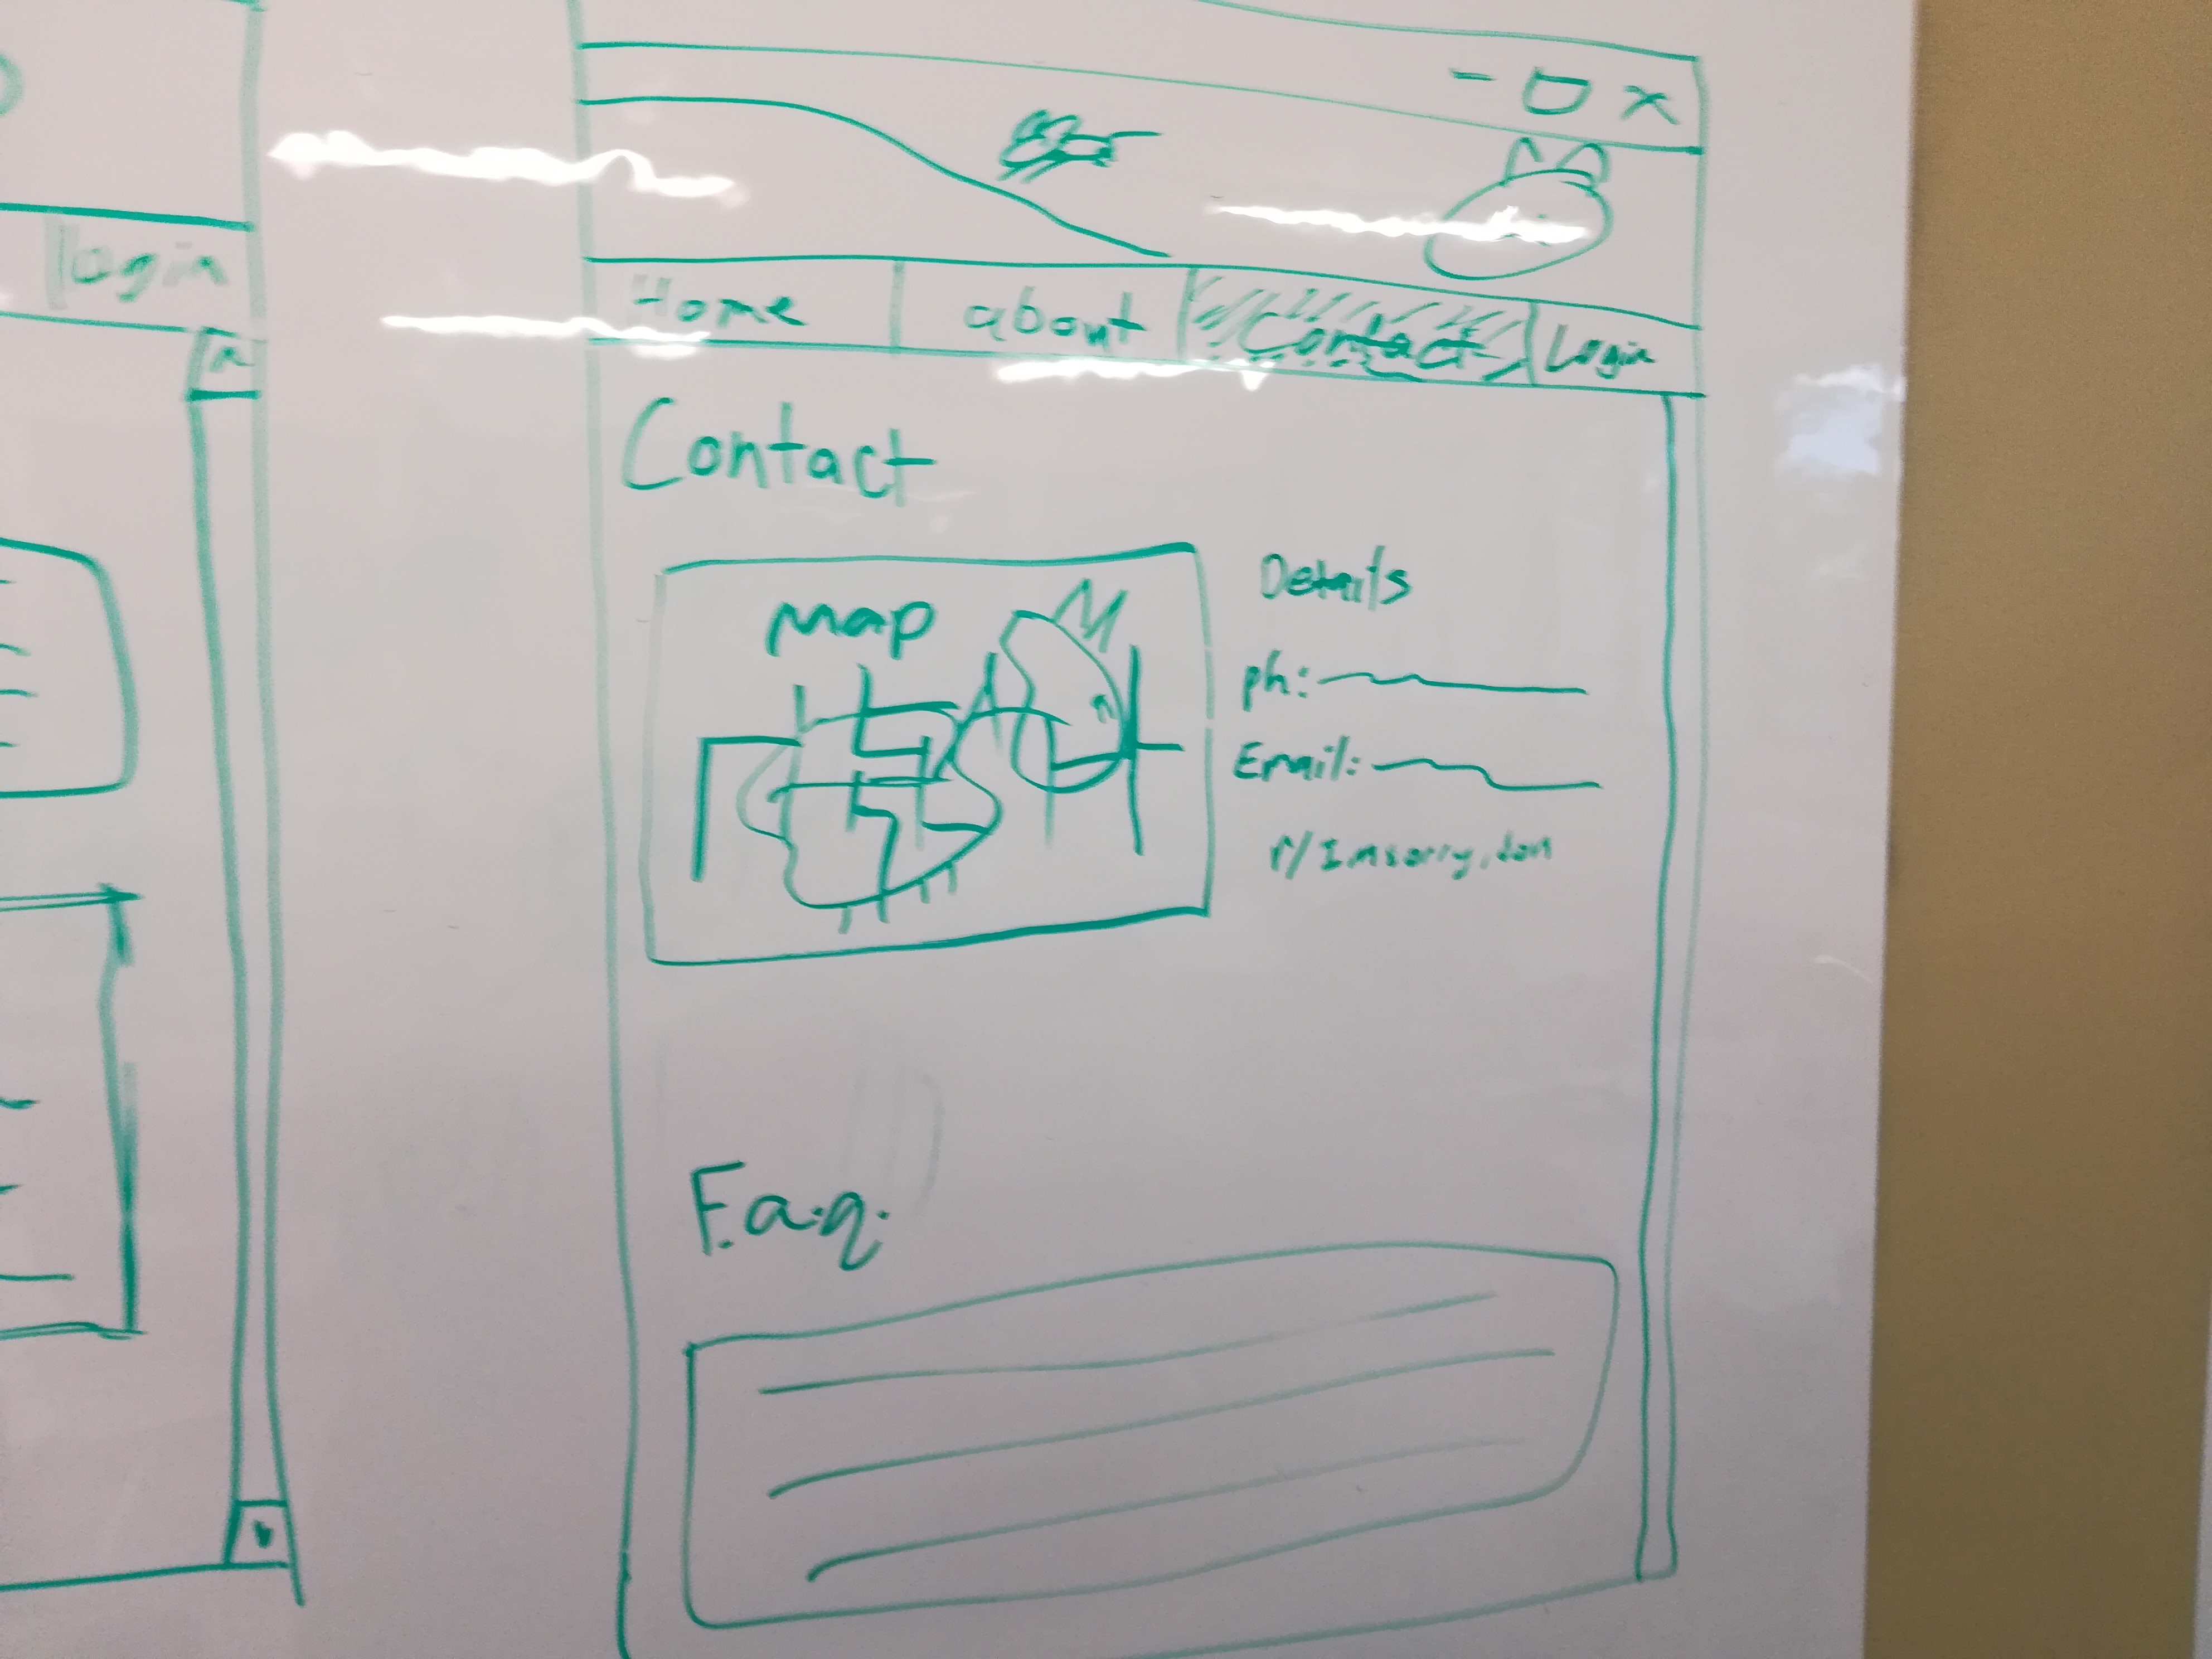 login
- □ x
Home about Contact Login
Contact
Map
Details
ph:
Email:
r/Imsorry,Jon
F.a.q.